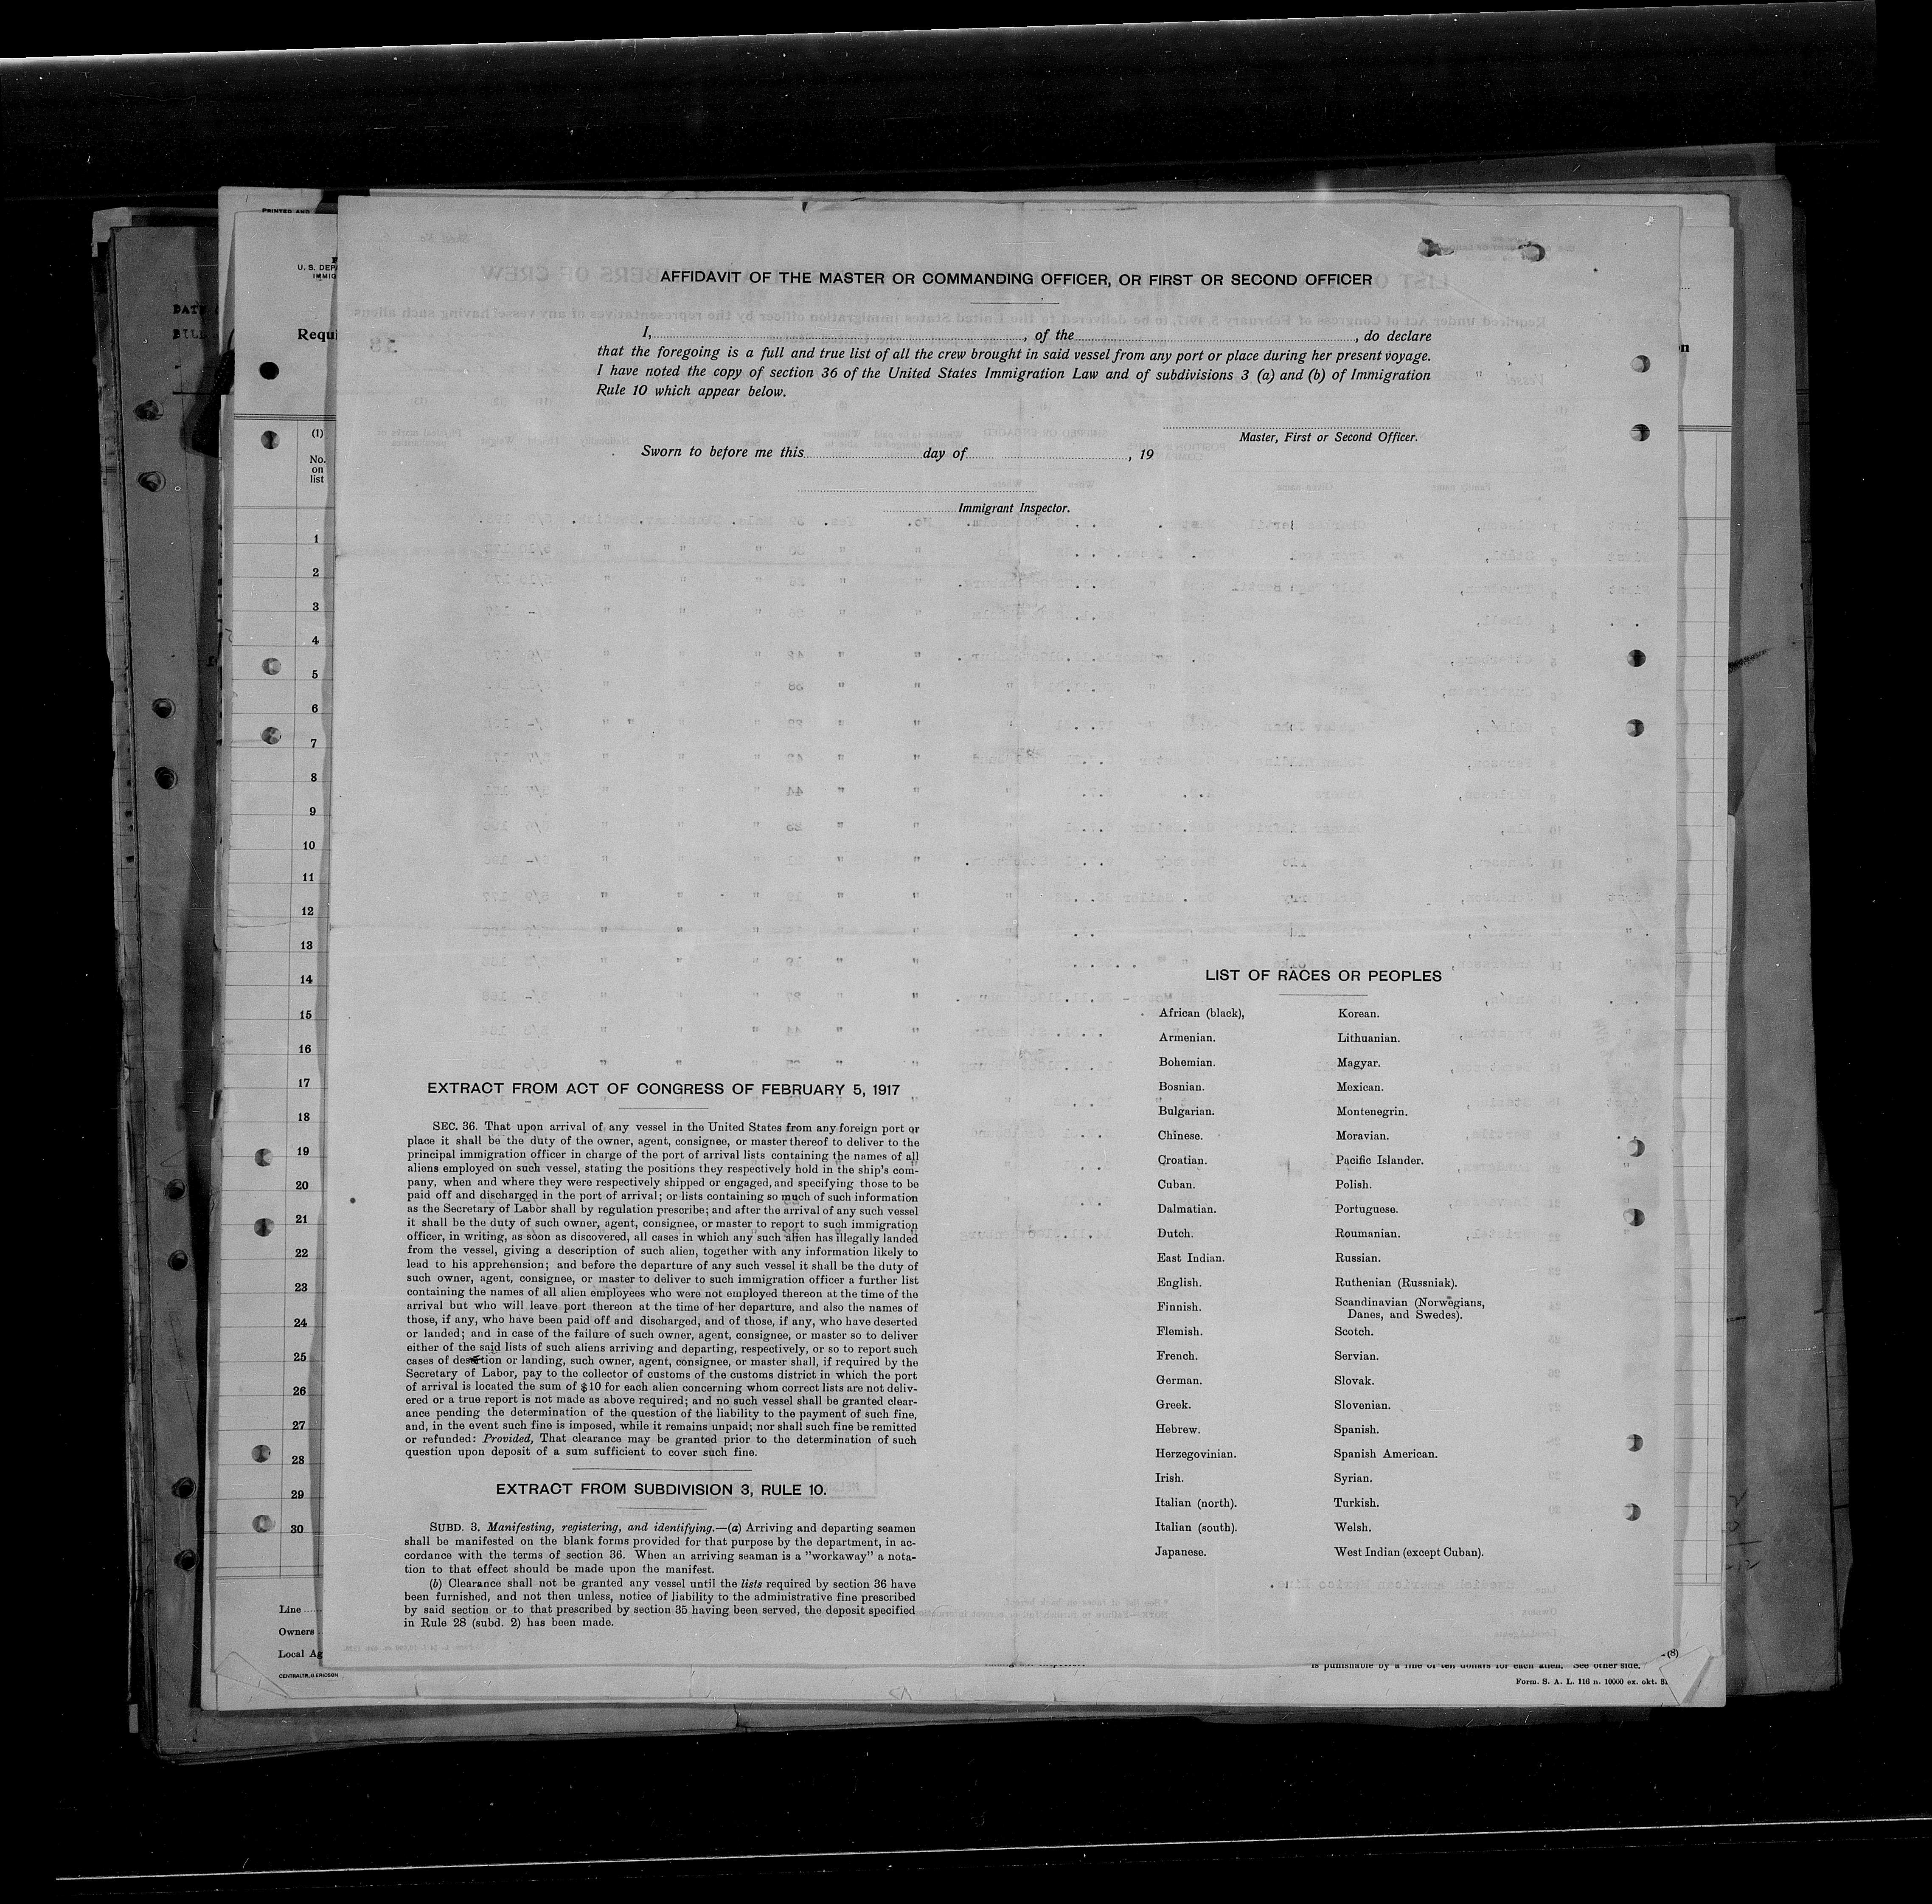 AFFIDAVIT OF THE MASTER OR COMMANDING OFFICER, OR FIRST OR SECOND OFFICER
I, , of the , do declare
that the foregoing is a full and true list of all the crew brought in said vessel from any port or place during her present voyage.
I have noted the copy of section 36 of the United States Immigration Law and of subdivisions 3 (a) and (b) of Immigration
Rule 10 which appear below.
Master, First or Second Officer.
Sworn to before me this day of , 19
Immigrant Inspector.
EXTRACT FROM ACT OF CONGRESS OF FEBRUARY 5, 1917
SEC. 36. That upon arrival of any vessel in the United States from any foreign port or
place it shall be the duty of the owner, agent, consignee, or master thereof to deliver to the
principal immigration officer in charge of the port of arrival lists containing the names of all
aliens employed on such vessel, stating the positions they respectively hold in the ship's com-
pany, when and where they were respectively shipped or engaged, and specifying those to be
paid off and discharged in the port of arrival; or lists containing so much of such information
as the Secretary of Labor shall by regulation prescribe; and after the arrival of any such vessel
it shall be the duty of such owner, agent, consignee, or master to report to such immigration
officer, in writing, as soon as discovered, all cases in which any such alien has illegally landed
from the vessel, giving a description of such alien, together with any information likely to
lead to his apprehension; and before the departure of any such vessel it shall be the duty of
such owner, agent, consignee, or master to deliver to such immigration officer a further list
containing the names of all alien employees who were not employed thereon at the time of the
arrival but who will leave port thereon at the time of her departure, and also the names of
those, if any, who have been paid off and discharged, and of those, if any, who have deserted
or landed; and in case of the failure of such owner, agent, consignee, or master so to deliver
either of the said lists of such aliens arriving and departing, respectively, or so to report such
cases of desertion or landing, such owner, agent, consignee, or master shall, if required by the
Secretary of Labor, pay to the collector of customs of the customs district in which the port
of arrival is located the sum of $10 for each alien concerning whom correct lists are not deliv-
ered or a true report is not made as above required; and no such vessel shall be granted clear-
ance pending the determination of the question of the liability to the payment of such fine,
and, in the event such fine is imposed, while it remains unpaid; nor shall such fine be remitted
or refunded: Provided, That clearance may be granted prior to the determination of such
question upon deposit of a sum sufficient to cover such fine.
EXTRACT FROM SUBDIVISION 3, RULE 10.
SUBD. 3. Manifesting, registering, and identifying.—(a) Arriving and departing seamen
shall be manifested on the blank forms provided for that purpose by the department, in ac-
cordance with the terms of section 36. When an arriving seaman is a "workaway" a nota-
tion to that effect should be made upon the manifest.
(b) Clearance shall not be granted any vessel until the lists required by section 36 have
been furnished, and not then unless, notice of liability to the administrative fine prescribed
by said section or to that prescribed by section 35 having been served, the deposit specified
in Rule 28 (subd. 2) has been made.
LIST OF RACES OR PEOPLES
African (black), Korean.
Armenian. Lithuanian.
Bohemian. Magyar.
Bosnian. Mexican.
Bulgarian. Montenegrin.
Chinese. Moravian.
Croatian. Pacific Islander.
Cuban. Polish.
Dalmatian. Portuguese.
Dutch. Roumanian.
East Indian. Russian.
English. Ruthenian (Russniak).
Finnish. Scandinavian (Norwegians,
Danes, and Swedes).
Flemish. Scotch.
French. Servian.
German. Slovak.
Greek. Slovenian.
Hebrew. Spanish.
Herzegovinian. Spanish American.
Irish. Syrian.
Italian (north). Turkish.
Italian (south). Welsh.
Japanese. West Indian (except Cuban).
PRINTED AND
U. S. DEP
IMMIG
Requi
(1)
No.
on
list
1
2
3
4
5
6
7
8
9
10
11
12
13
14
15
16
17
18
19
20
21
22
23
24
25
26
27
28
29
30
Line
Owners
Local Ag
CENTRALTR., G. ERICSON
(8)
is punishable by a fine of ten dollars for each alien. See other side.
Form. S. A. L. 116 n. 10000 ex. okt. 31